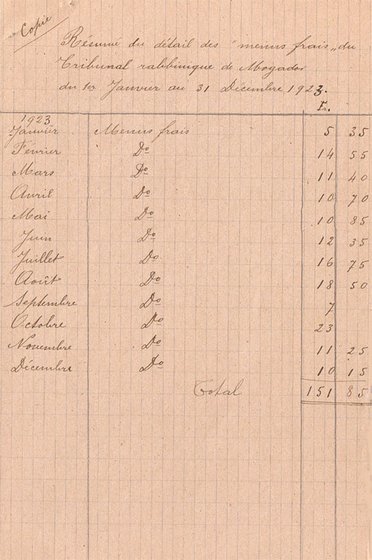 Copie
Résumé du détail des "menus frais" du
Tribunal rabbinique de Mogador
du 10 Janvier au 31 Décembre 1923.
1923
Janvier Menus frais 5 35
Février Do 14 55
Mars Do 11 40
Avril Do 10 70
Mai Do 10 85
Juin Do 12 35
Juillet Do 16 75
Août Do 18 50
Septembre Do 7
Octobre Do 23
Novembre Do 11 25
Décembre Do 10 15
Total 151 85